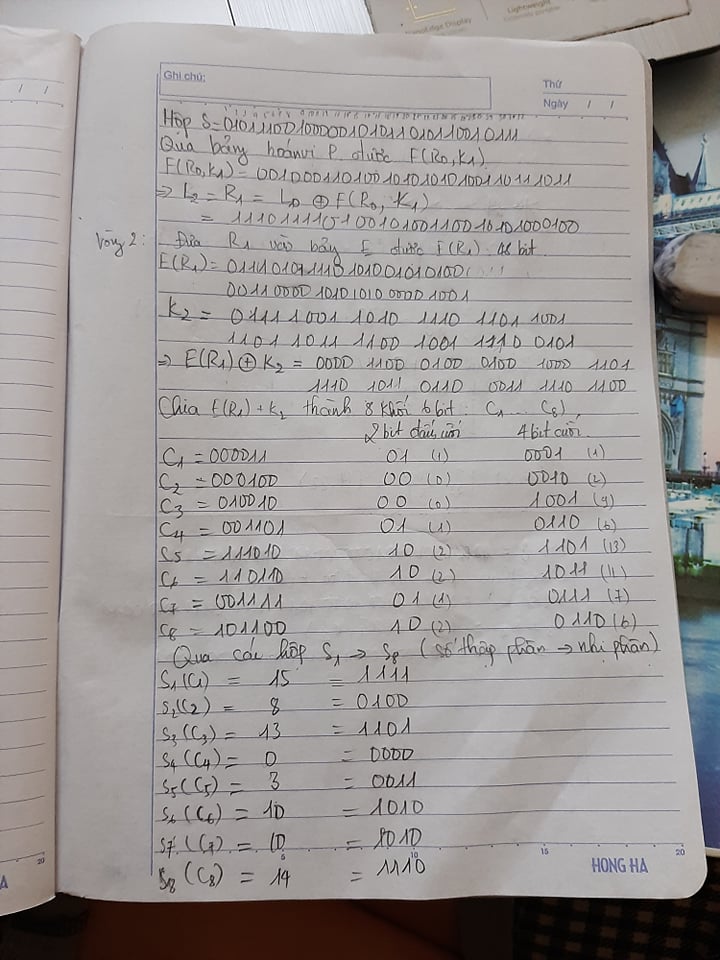 NanoEdge Display
Lightweight
Ghi chú:
Thứ
Ngày / /
Hộp S = 01011100100000101011010110010111
Qua bảng hoán vị P. được F(R0,K1)
F(R0,K1) = 00100011010010101010100110111011
=> L2 = R1 = L0 ⊕ F(R0, K1)
= 11101111010010100110010101000100
Vòng 2: Đưa R1 vào bảng E được E(R1) 48 bit
E(R1) =
0011 0000 1010 1010 0000 1001
K2 = 0111 1001 1010 1110 1101 1001
1101 1011 1100 1001 1110 0101
=> E(R1) ⊕ K2 = 0000 1100 0100 0100 1000 1101
1110 1011 0110 0011 1110 1100
Chia E(R1) + K2 thành 8 khối 6 bit: C1 ... C8),
2 bit đầu cuối 4 bit cuối
C1 = 000011 01 (1) 0001 (1)
C2 = 000100 00 (0) 0010 (2)
C3 = 010010 00 (0) 1001 (9)
C4 = 001101 01 (1) 0110 (6)
S5 = 111010 10 (2) 1101 (13)
C6 = 110110 10 (2) 1011 (11)
C7 = 001111 01 (1) 0111 (7)
C8 = 101100 10 (2) 0110 (6)
Qua các hộp S1 -> S8 (số thập phân -> nhị phân)
S1(C1) = 15 = 1111
S2(C2) = 8 = 0100
S3(C3) = 13 = 1101
S4(C4) = 0 = 0000
S5(C5) = 3 = 0011
S6(C6) = 10 = 1010
S7(C7) = 10 = 1010
S8(C8) = 14 = 1110
5 10 15 20
HONG HA
20